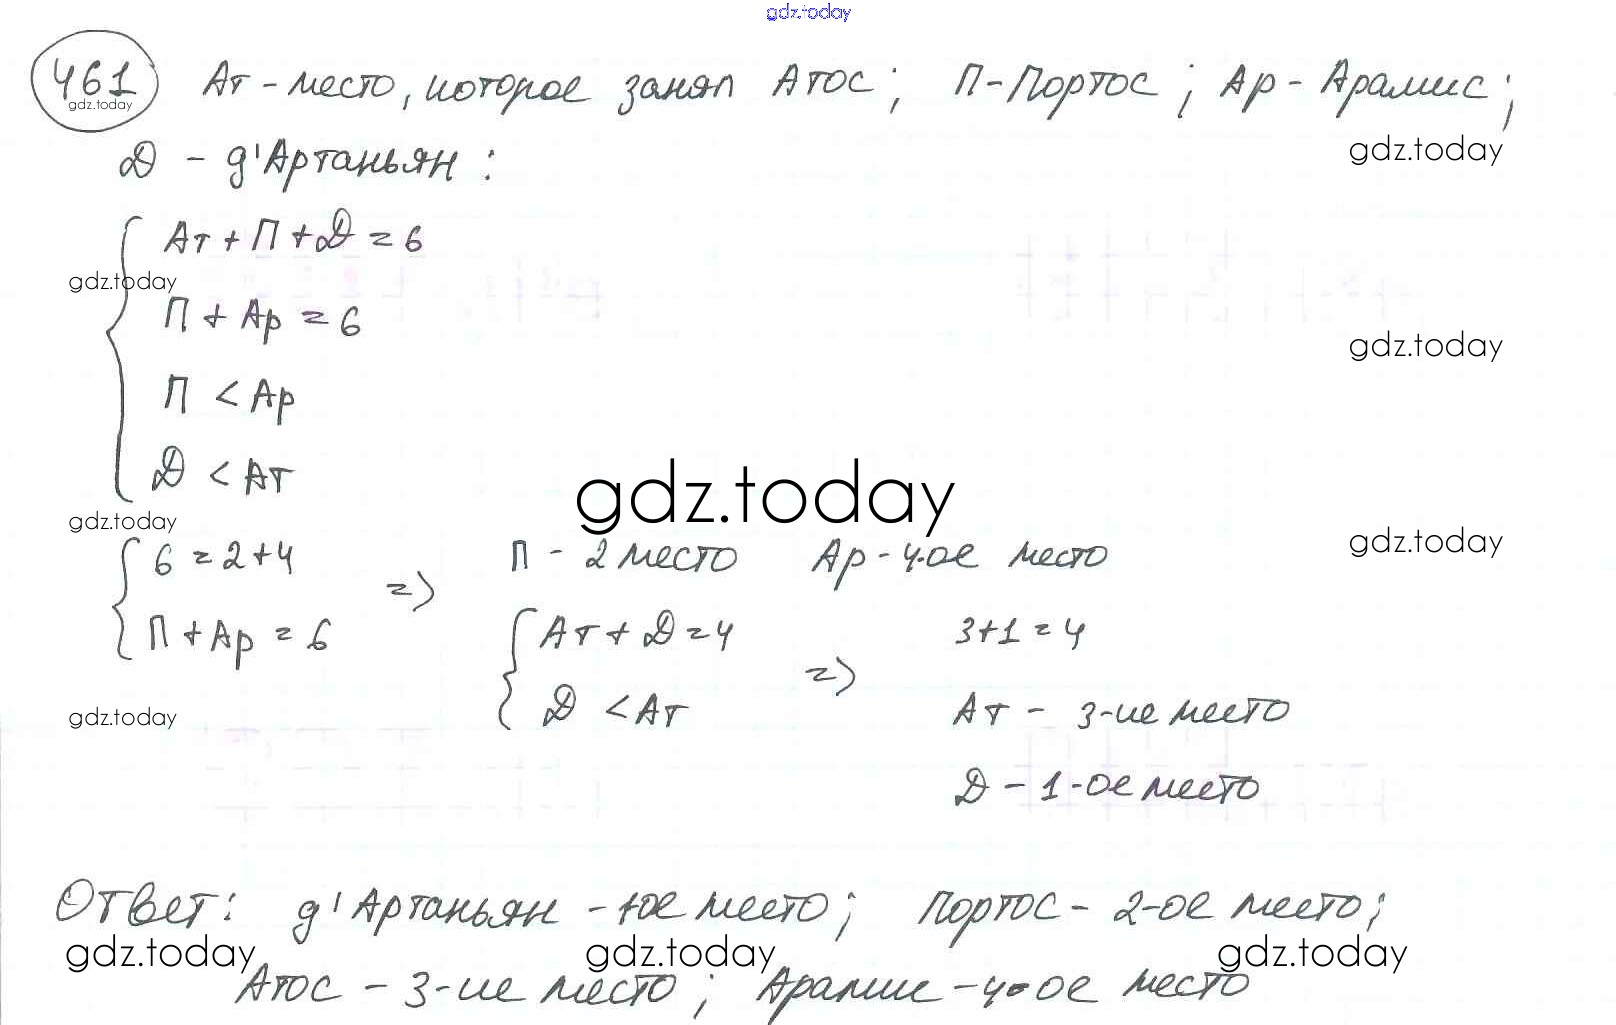 gdz.today
461 Ат - место, которое занял Атос; П - Портос; Ар - Арамис;
gdz.today
gdz.today
Д - д'Артаньян:
Ат + П + Д = 6
gdz.today
П + Ар = 6
gdz.today
П < Ар
Д < Ат
gdz.today
gdz.today
gdz.today
6 = 2 + 4 => П - 2 место Ар - 4-ое место
П + Ар = 6 Ат + Д = 4 => 3 + 1 = 4
Д < Ат Ат - 3-ие место
gdz.today
Д - 1-ое место
Ответ: д'Артаньян - 1-ое место; Портос - 2-ое место;
gdz.today gdz.today gdz.today
Атос - 3-ие место; Арамис - 4-ое место